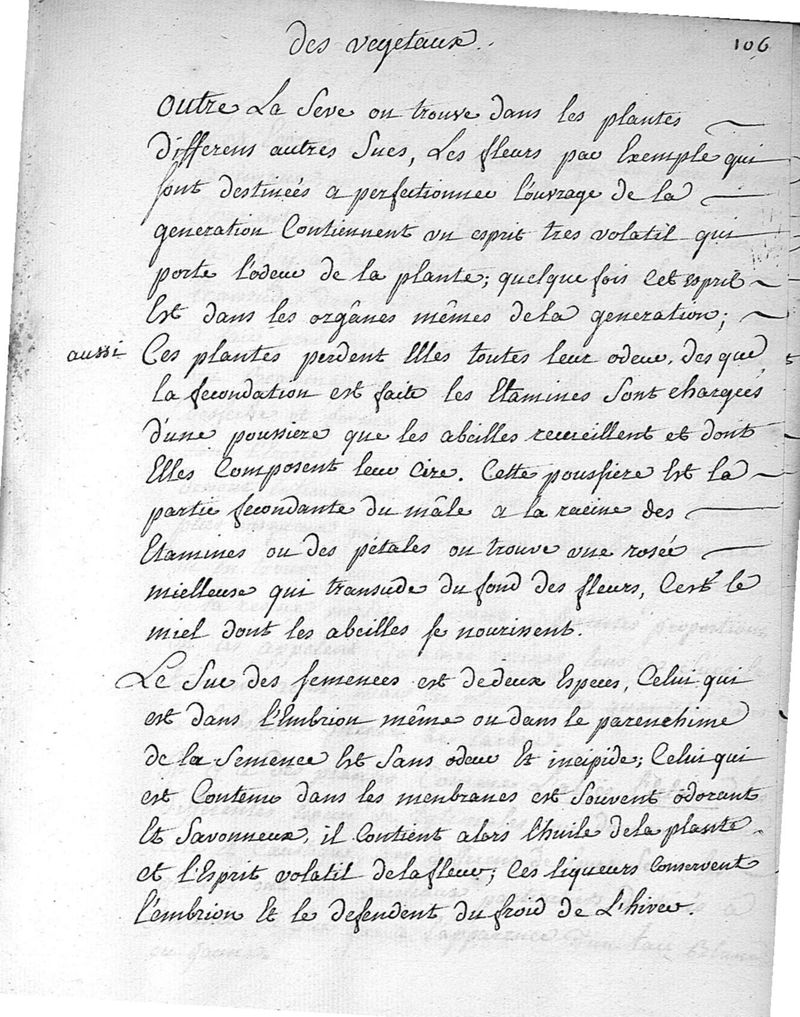 des vegetaux.
106
outre La Seve on trouve dans les plantes
differens autres Sucs, Les fleurs par Exemple qui
sont destineés a perfectionner l'ouvrage de la
generation Contiennent un esprit tres volatil qui
porte l'odeur de la plante; quelque fois Cet esprit
Est dans les orgânes mêmes de la generation;
aussi Ces plantes perdent Elles toutes leur odeur, des que
la fecondation est faite les Etamines Sont chargeés
d'une poussiere que les abeilles recueillent et dont
Elles Composent leur Cire. Cette poussiere Est la
partie fecondante du mâle a la racine des
Etamines ou des pétales on trouve une rosée
mielleuse qui transude du fond des fleurs, C'est le
miel dont les abeilles se nourissent.
Le Suc des semences est de deux Especes, Celui qui
est dans l'Embrion même ou dans le parenchime
de la Semence Est Sans odeur Et incipide; Celui qui
est Contenu dans les menbranes est Souvent odorant
Et Savonneux, il Contient alors l'huile de la plante
et l'Esprit volatil de la fleur; Ces liqueurs Conservent
l'embrion Et le defendent du froid de L'hiver.